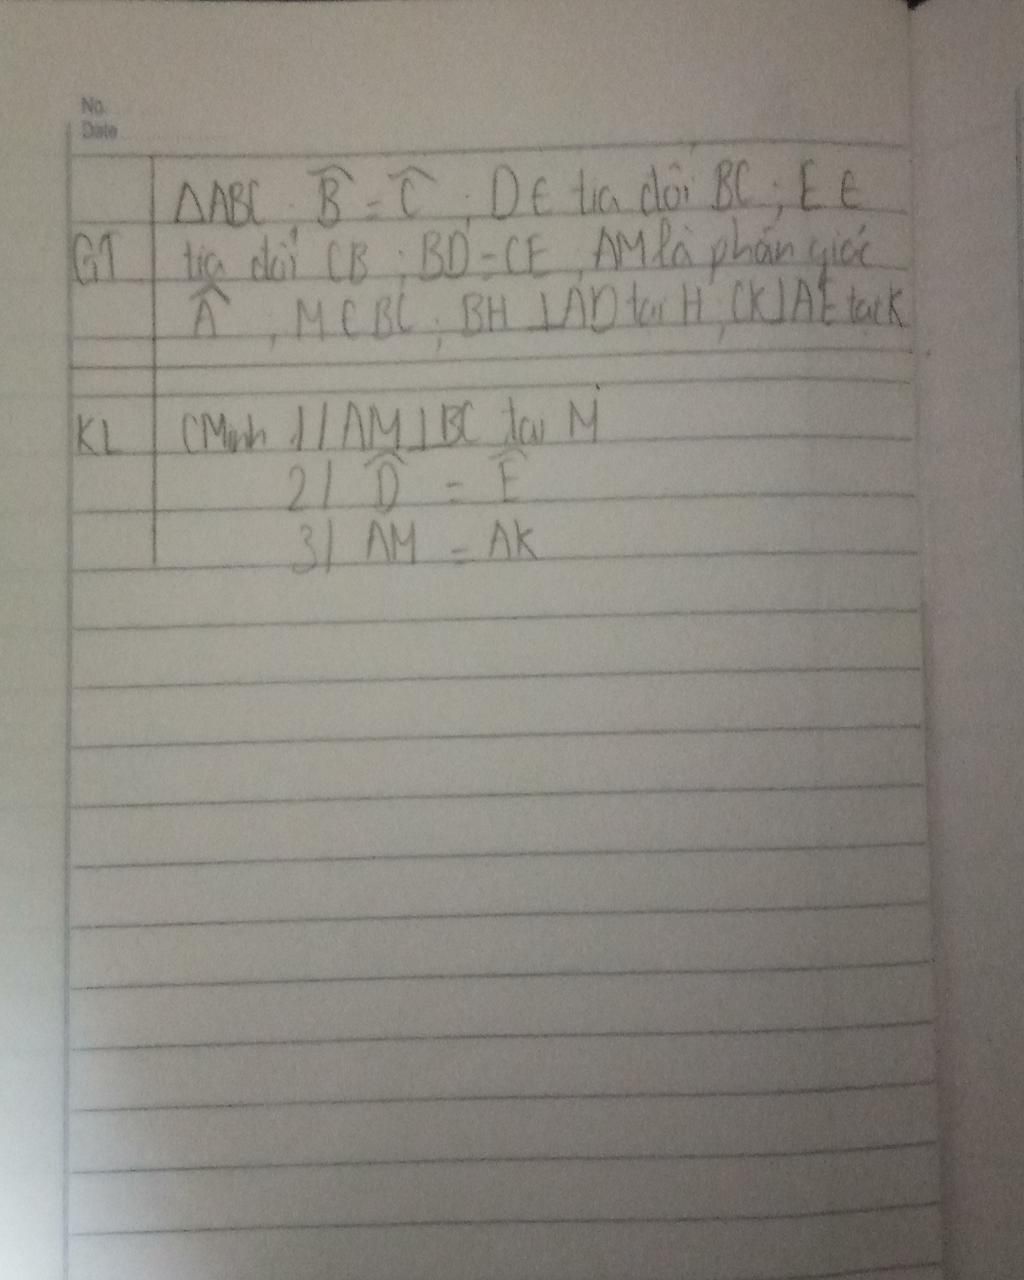 No.
Date
ΔABC. B̂ = Ĉ ; D ∈ tia đối BC ; E ∈
GT tia đối CB ; BD = CE, AM là phân giác
Â, M ∈ BC ; BH ⊥ AD tại H, CK ⊥ AE tại K
KL CMinh 1/ AM ⊥ BC tại M
2/ D̂ = Ê
3/ AM = AK